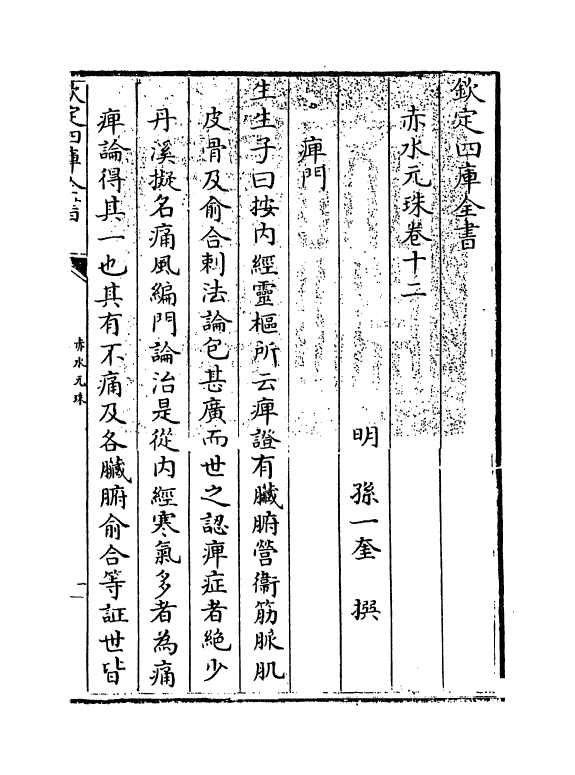 欽定四庫全書
赤水元珠卷十二
明 孫一奎 撰
痺門
生生子曰按內經靈樞所云痺證有臟腑營衞筋脈肌
皮骨及俞合刺法論包甚廣而世之認痺症者絶少
丹溪擬名痛風編門論治是從內經寒氣多者為痛
痺論得其一也其有不痛及各臟腑俞合等証世皆
欽定四庫全書
赤水元珠